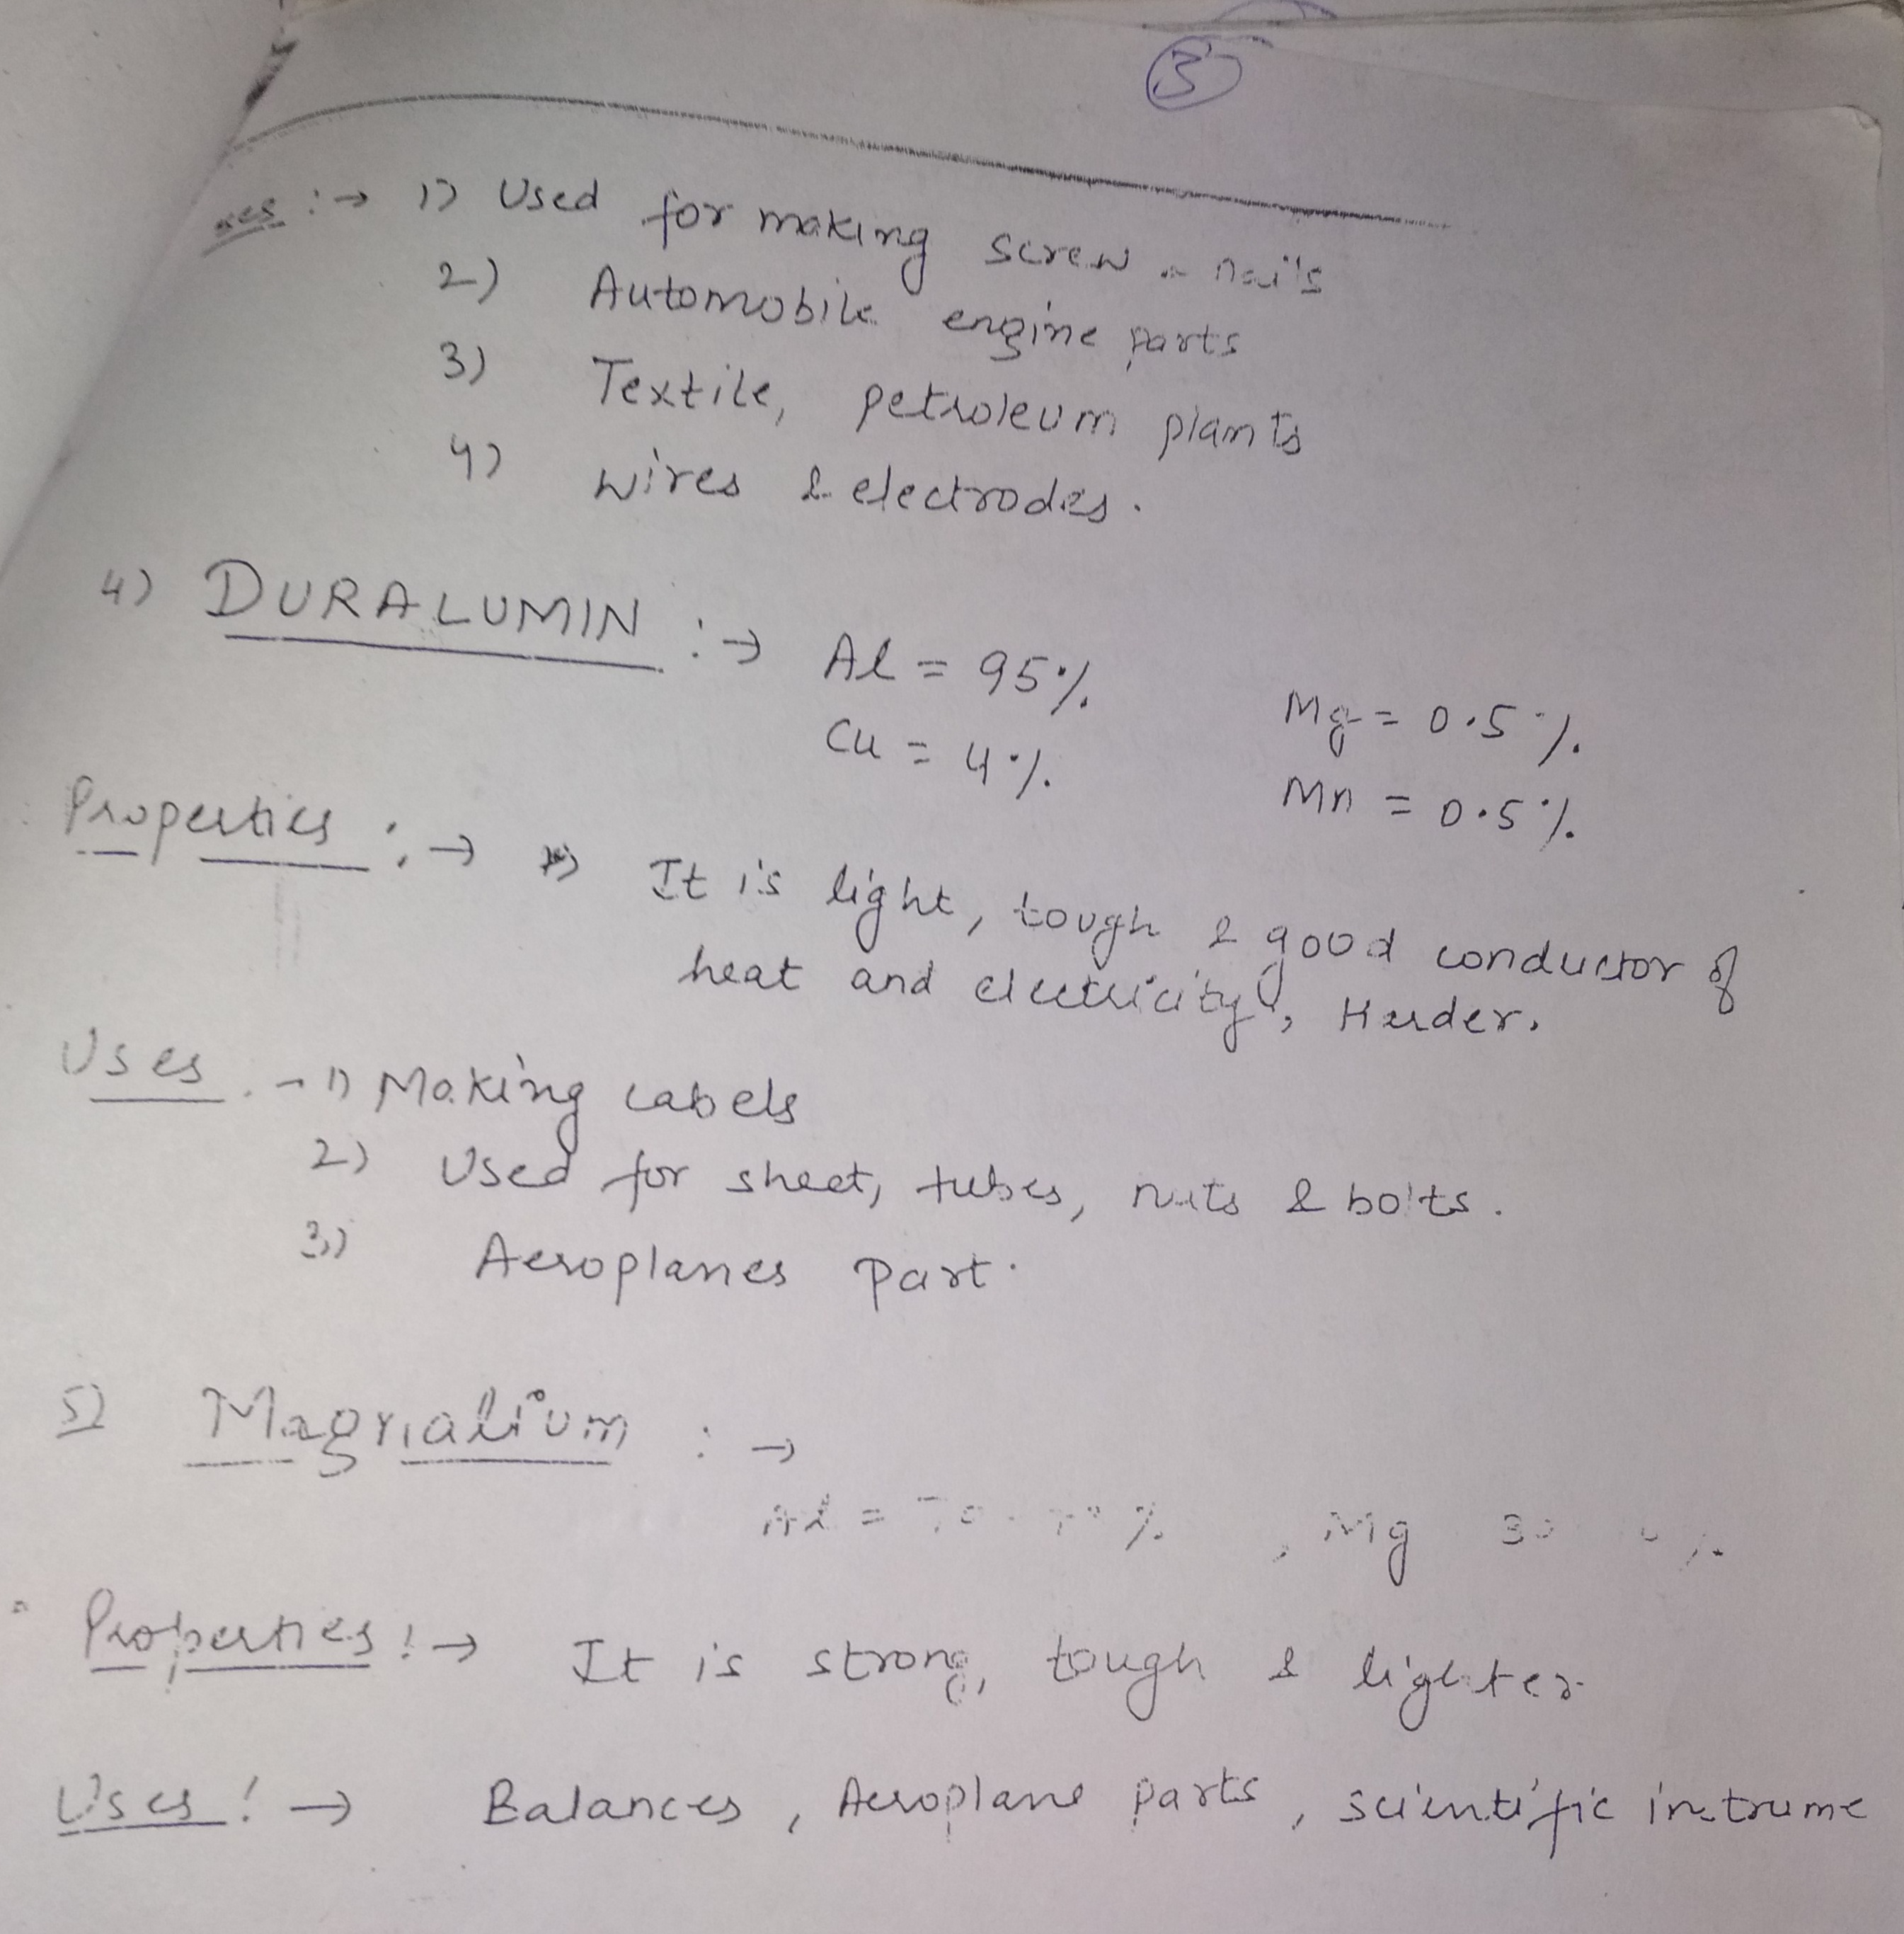 3
:→ 1) Used for making screw nails
2) Automobile engine parts
3) Textile, petroleum plants
4) wires & electrodes.
4) DURALUMIN :→ Al = 95% Mg = 0.5%
Cu = 4% Mn = 0.5%
Properties :→ It is light, tough & good conductor of
heat and electricity, Harder.
Uses → 1) Making cabels
2) Used for sheet, tubes, nuts & bolts.
3) Aeroplanes part.
5) Magnalium :→
Al = % , Mg %
Properties :→ It is strong, tough & lighter
Uses :→ Balances , Aeroplane parts , scientific instrume